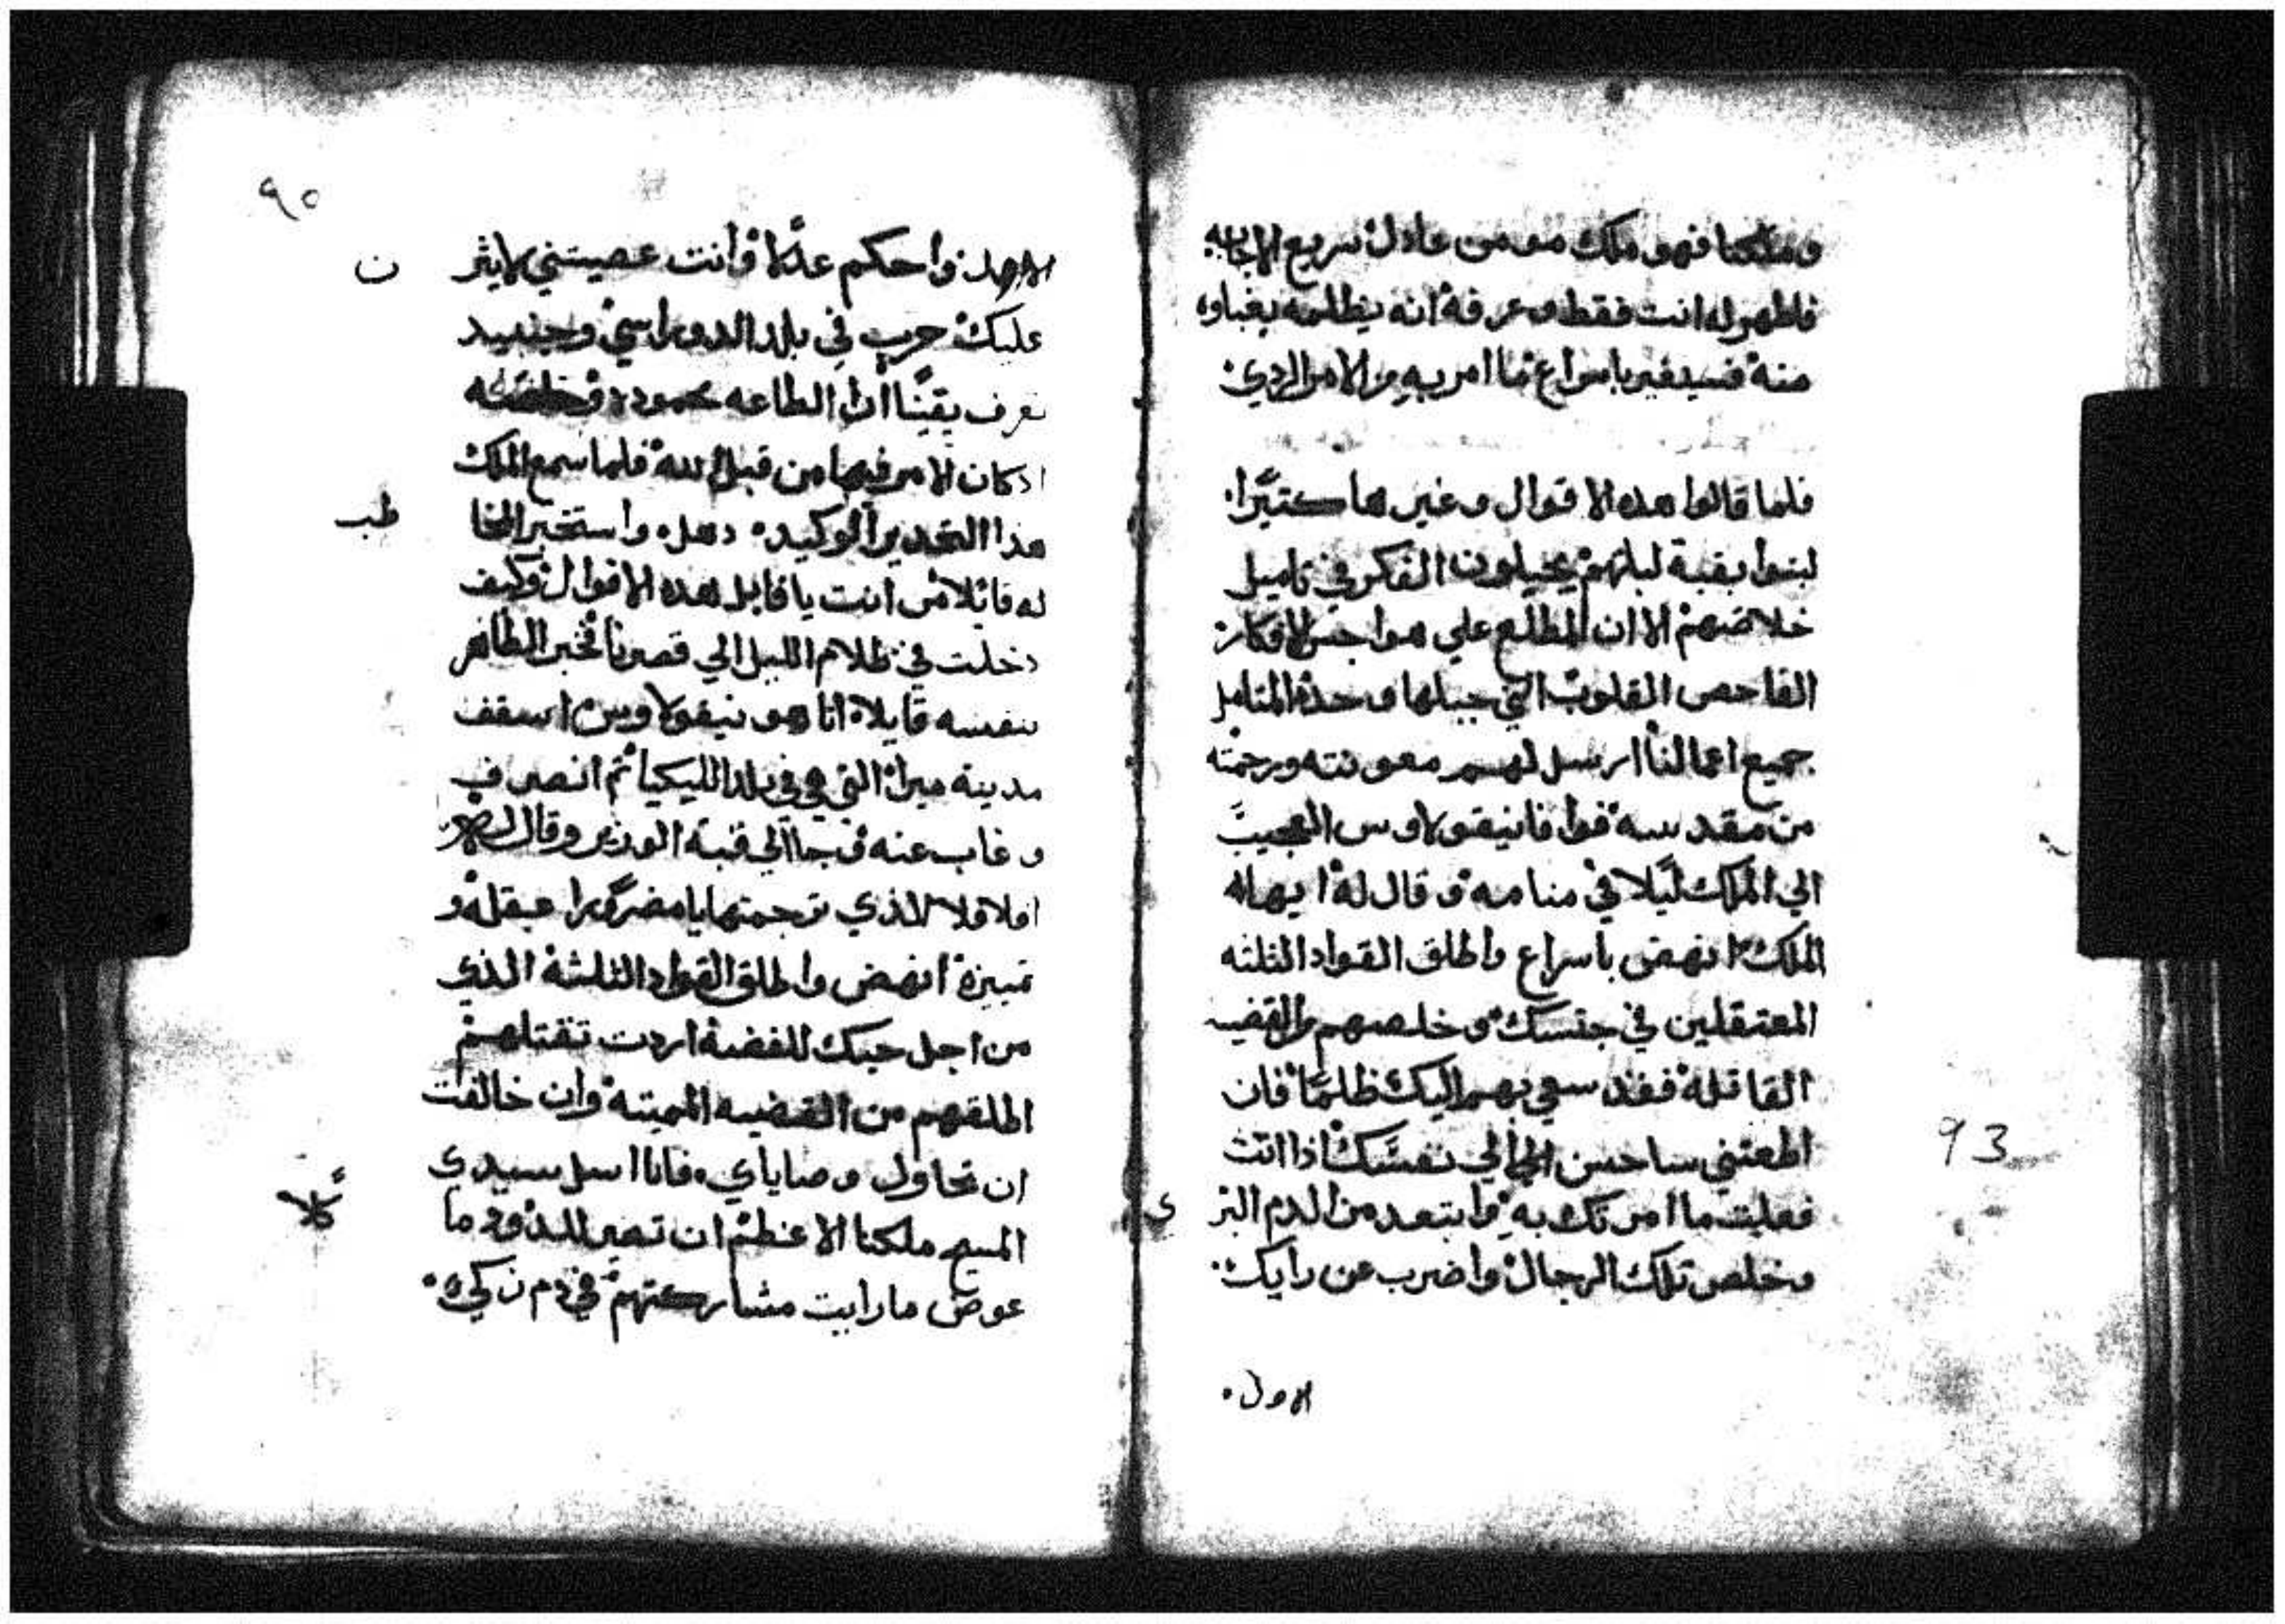 وملكنا فهو ملك مومن عادل سريع الاجابه
فاظهر له انت فقط وعرفه انه يظلمه بغباوه
منه فسيغير باسراع ما امر به من الامر الردي
فلما قالوا هده الاقوال وغيرها كتيرًا
لبتوا بقية ليلتهم يحيلون الفكر في تاميل
خلاصهم الا ان المطلع علي هواجس الافكار
الفاحص القلوب التي جبلها وحده المتامل
جميع اعمالنا ارسل لهم معونته ورحمته
من مقدسه فوافا نيقولاوس العجيب
الي الملك ليلا في منامه وقال له ايها
الملك انهض باسراع واطلق القواد الثلثه
المعتقلين في حبسك وخلصهم من القضيه
القاتله فقد سعي بهم اليك ظلمًا فان
اطعتني ساحسن الي نفسك اذا انت
فعلت ما امرتك به وابتعد من الدم البر
وخلص تلك الرجال واضرب عن رايك
الاول
93
ي
٩٥
الاول واحكم عدلا وانت عصيتني لايثر
ن
عليك حرب في بلد الدوراسي وحينيد
تعرف يقينًا ان الطاعه محموده وخاصّه
ادكان الامر فيها من قبل الله فلما سمع الملك
هذا التحدير الوكيد دهل واستخبر المخا
طب
له قائلا من انت يا قايل هده الاقوال وكيف
دخلت في ظلام الليل الي قصرنا فخبر الظاهر
بنفسه قايلا انا هو نيقولاوس اسقف
مدينة ميرا التي هي في بلد الليكيا ثم انصرف
وغاب عنه وجا الي قبة الوزير وقال له
افلاقلا الذي ترجمتها يا مضرورا عقله و
تمييزه انهض واطلق القواد الثلثة الذي
من اجل حبك للفضة اردت تقتلهم
اطلقهم من القضيه المميته وان خالفت
ان تحاول وصاياي فانا اسل سيدي
المسيح ملكنا الاعظم ان تصير للدود ما
كلا
عوض ما رايت مشاركتهم في دم زكي